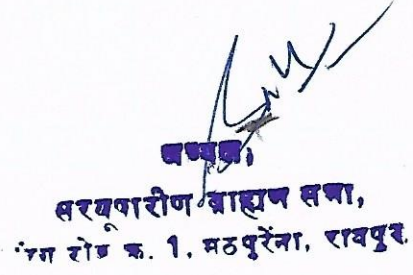 अध्यक्ष,
सरयूपारीण ब्राह्मण सभा,
रिंग रोड क्र. 1, मठपुरेंना, रायपुर.